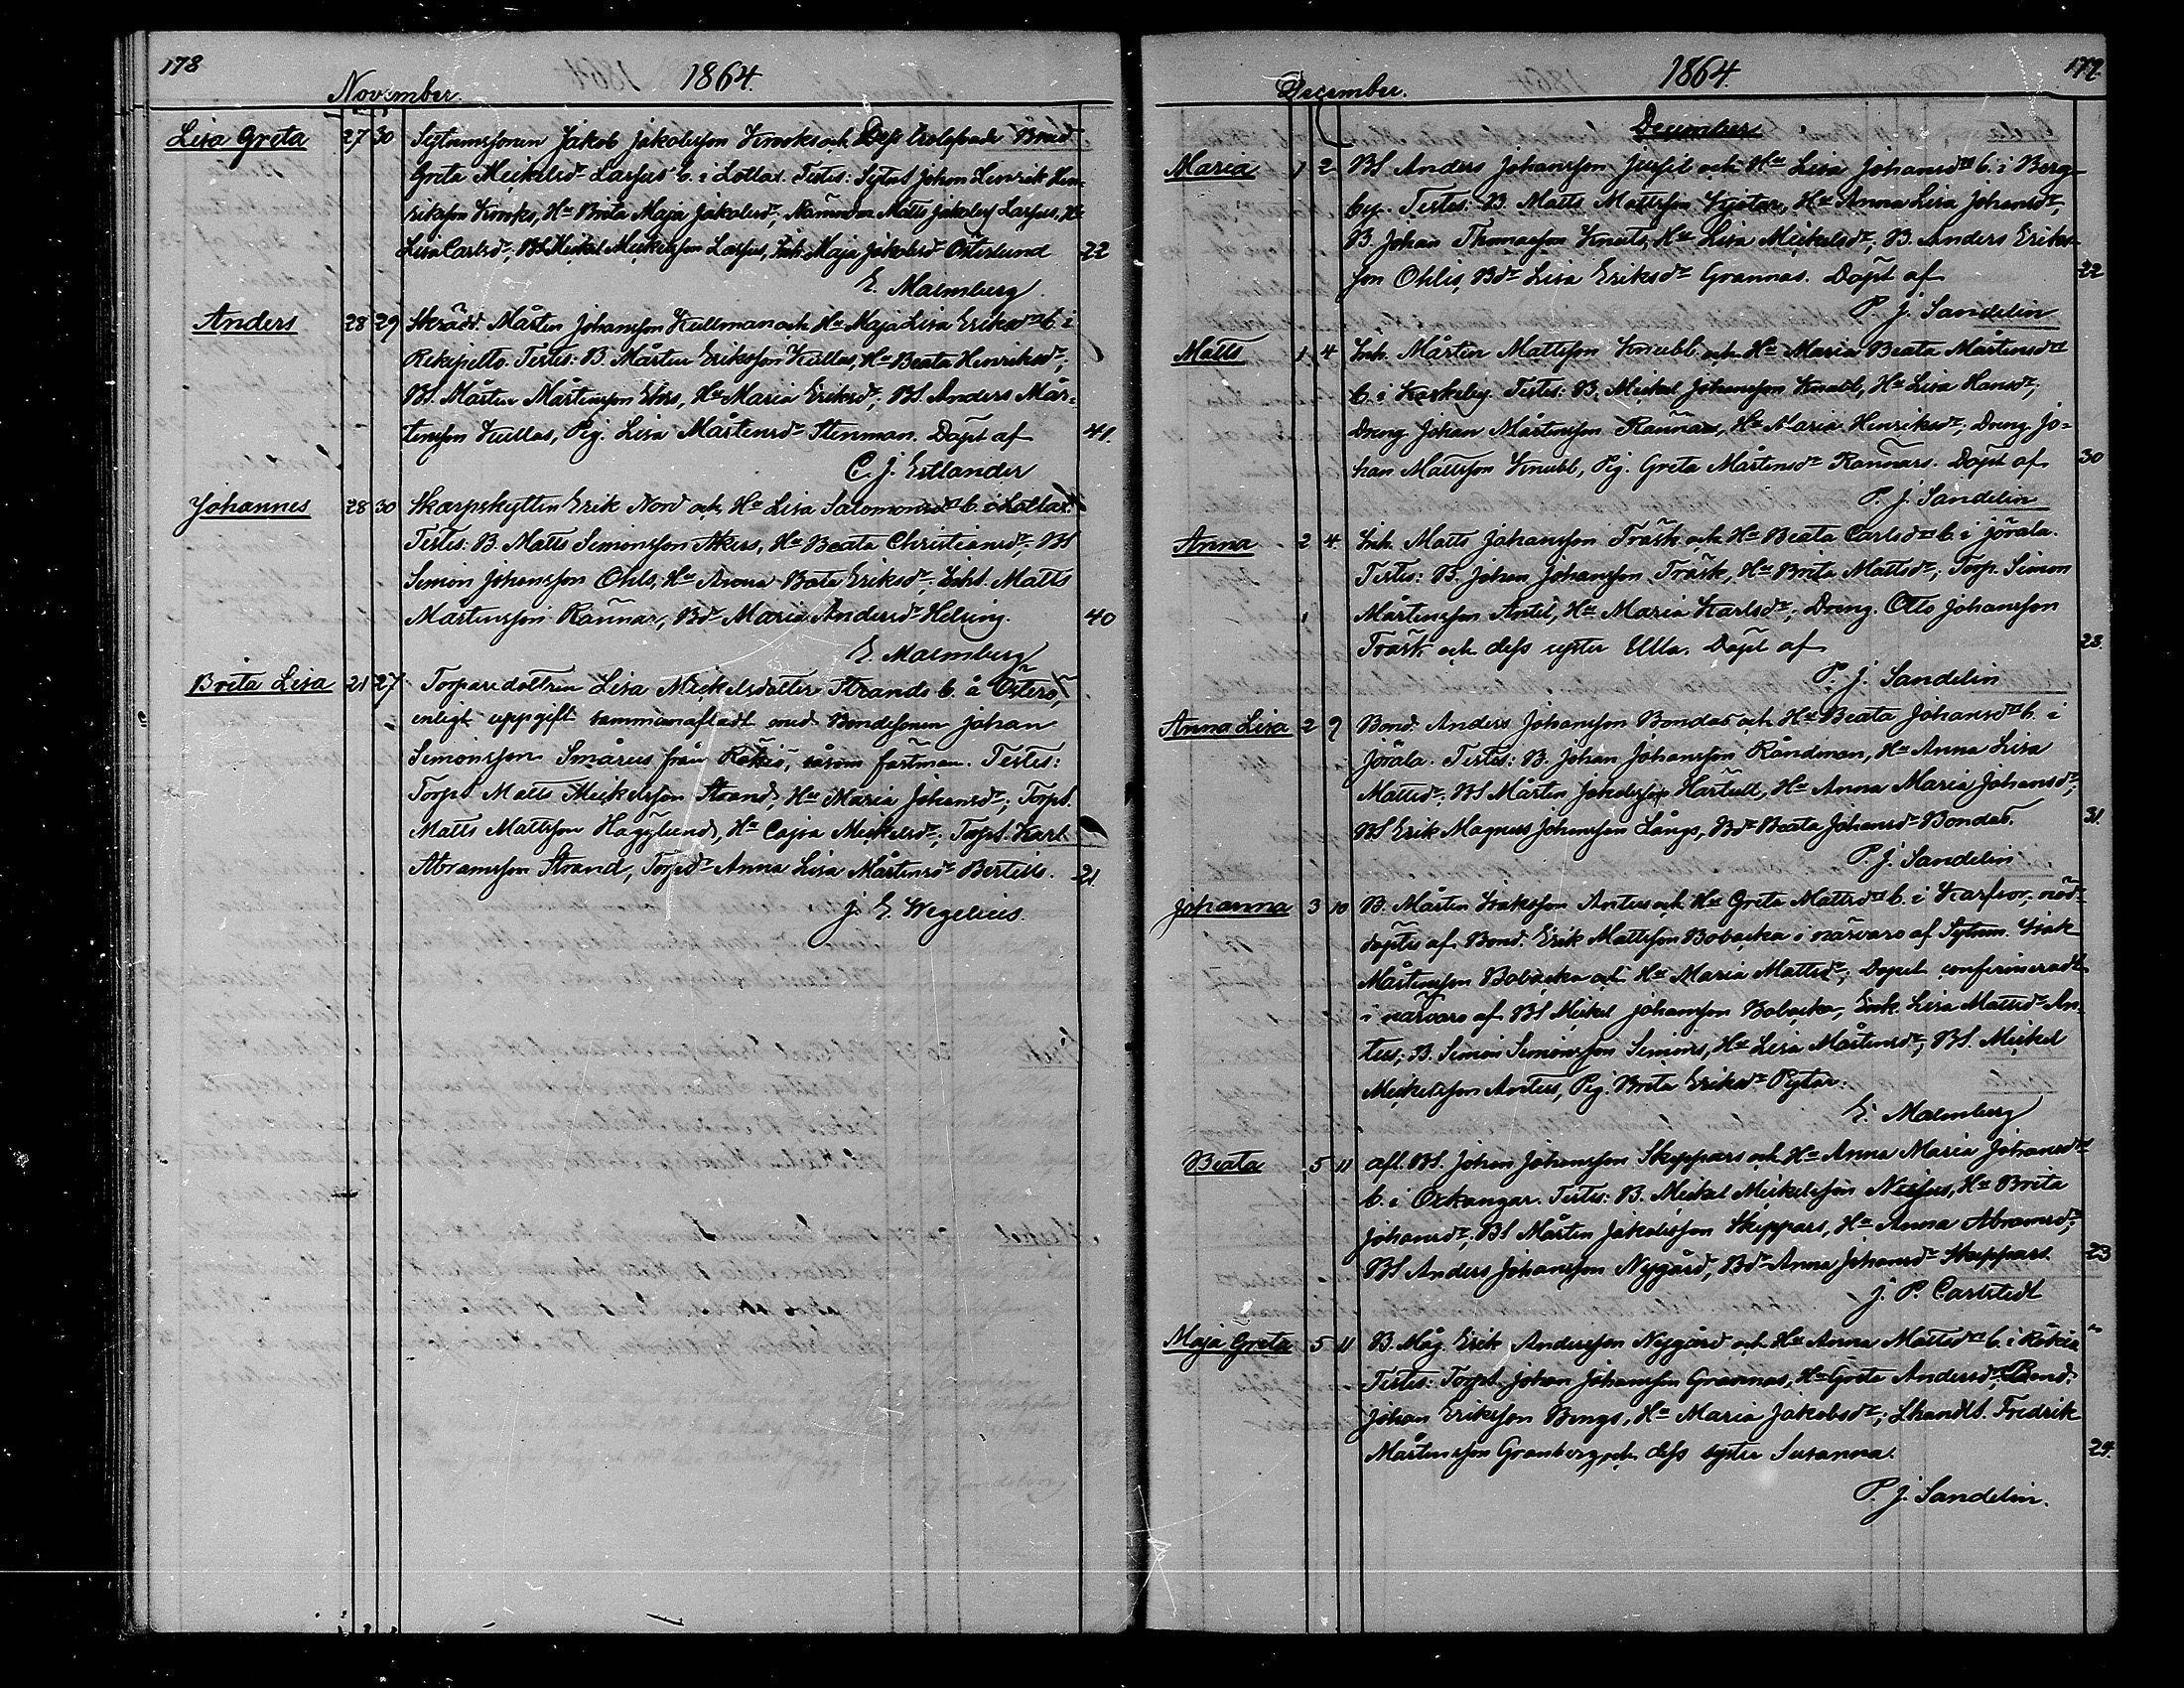 178
1864.
November.
Lisa Greta 27 30 Sytnmssonen Jakob Jakobsson Krooks och Dess trolofvade Brud
Greta Mickelsdr Lassus b. i Lottar. Testes: Sytns Johan Henrik Hen-
riksson Krooks, Hu Brita Maja Jakobsdr, Nämndm Matts Jakobss Lassus, Hu
Lisa Carlsdr; BS Mickel Mickelsson Lassus, Inh. Maja Jakobsdr Österlund 22
E. Malmberg
Anders 28 29 Skrädd. Mårten Johansson Kullman och Hu Maja Lisa Eriksdr b. i
Rekipello. Testes: B. Mårten Eriksson Kullas, Hu Beata Henriksdr;
BS. Mårten Mårtensson Ehrs, Hu Maria Eriksdr; BS. Anders Mår-
tensson Kullas, Pig. Lisa Mårtensdr Stenman. Döpt af 41.
C. J. Estlander
Johannes 28 30 Skarpskytten Erik Nord och Hu Lisa Salomonsdr b. i Lottar.
Testes: B. Matts Simonsson Akers, Hu Beata Christiansdr; BS
Simon Johansson Ohls, Hu Anna Beata Eriksdr; Inh. Matts
Mårtensson Rånnar, Bdr Maria Andersdr Helsing. 40
E. Malmberg
Brita Lisa 21 27 Torparedottren Lisa Mickelsdotter Strands b. å Österö,
enligt uppgift sammanafladt med Bondesonen Johan
Simonsson Smärus från Rökiö, såsom fästman. Testes:
Torps Matts Mickelsson Strand, Hu Maria Johansdr; Torps.
Matts Mattsson Hägglund, Hu Cajsa Mickelsdr; Torps. Karl
Abramsson Strand, Torpdr Anna Lisa Mårtensdr Bertills. 21.
J. E. Wegelius.
179.
1864.
December.
December
Maria 1 2 BS Anders Johansson Jusfil och Hu Lisa Johansdr b. i Berg-
by. Testes: B. Matts Mattsson Kjötar, Hu Anna Lisa Johansdr;
B. Johan Thomasson Knuts, Hu Lisa Mickelsdr; B. Anders Eriks-
son Ohlis, Bdr Lisa Eriksdr Grannas. Döpt af 22
P. J. Sandelin
Matts 1 4 Inh. Mårten Mattsson Knubb och Hu Maria Beata Mårtensdr
b. i Karkeby. Testes: B. Mickel Johansson Knubb, Hu Lisa Hansdr;
Dreng Johan Mårtensson Rånnars, Hu Maria Henriksdr; Dreng. Jo-
han Mattsson Knubb, Pig. Greta Mårtensdr Rannars. Döpt af 30
P. J. Sandelin
Anna 2 4 Inh. Matts Johansson Träsk och Hu Beata Carlsdr b. i Jöräla.
Testes: B. Johan Johansson Träsk, Hu Brita Mattsdr; Torp. Simon
Mårtensson Antil, Hu Maria Karlsdr; Dreng. Otto Johansson
Träsk och dess syster Ulla. Döpt af 23.
P. J. Sandelin
Anna Lisa 2 9 Bond. Anders Johansson Bondas och Hu Beata Johansdr b. i
Jöräla. Testes: B. Johan Johansson Råndman, Hu Anna Lisa
Mattsdr; BS Mårten Jakobsson Härtull, Hu Anna Maria Johansdr;
BS Erik Magnus Johansson Långs, Bdr Beata Johansdr Bondas. 31.
P. J. Sandelin
Johanna 3 10 B. Mårten Isaksson Antus och Hu Greta Mattsdr b. i Karfvor, nöd-
döptes af Bond. Erik Mattsson Bobacka i närvaro af Sytnm. Isak
Mårtensson Bobacka och Hu Maria Mattsdr; Dopet confirmeradt
i närvaro af BS Mickel Johansson Bobacka, Enk. Lisa Mattsdr An-
tus; B. Simon Simonsson Simons, Hu Lisa Mårtensdr; BS. Mickel
Mickelsson Antus, Pig. Brita Eriksdr Pytar.
E. Malmberg
Beata 5 11 afl. BS. Johan Johansson Skeppars och Hu Anna Maria Johansdr
b. i Oxkangar. Testes: B. Mickel Mickelsson Nissus, Hu Brita
Johansdr; BS Mårten Jakobsson Skeppars, Hu Anna Abramsdr;
BS Anders Johansson Nygård, Bdr Anna Johansdr Skeppars. 23
J. P. Carlstedt
Maja Greta 5 11 B. Måg. Erik Andersson Nygård och Hu Anna Mattsdr b. i Rökiö
Testes: Torps. Johan Johansson Gräsnas, Hu Greta Andersdr; Bond.
Johan Eriksson Bengs, Hu Maria Jakobsdr; Lhandl. Fredrik
Mårtensson Granberg och dess syster Susanna. 24.
P. J. Sandelin.